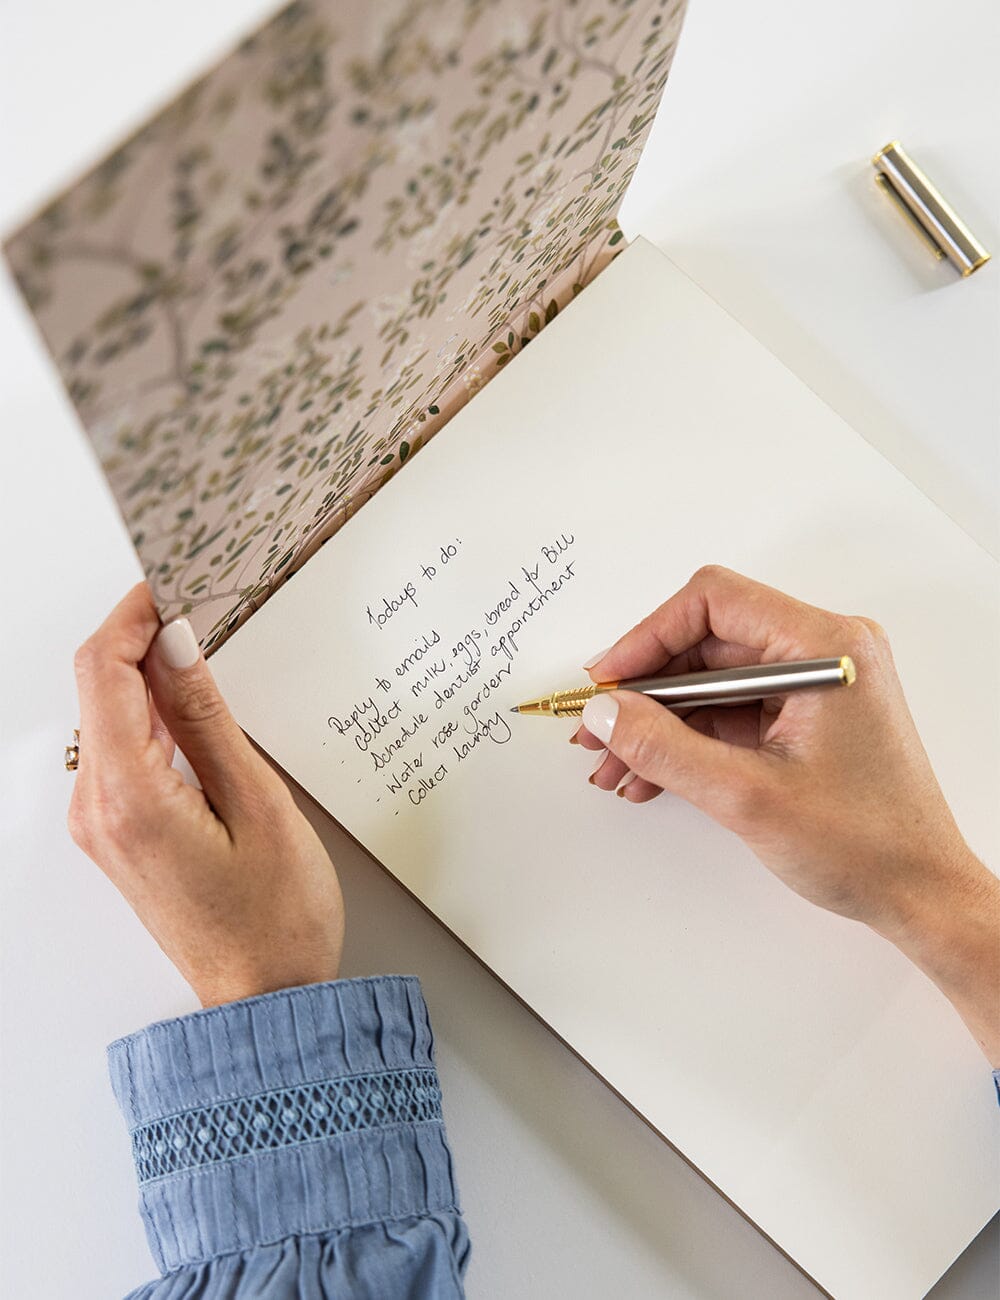 Todays to do:
- Reply to emails
- Collect milk, eggs, bread for Bill
- Schedule dentist appointment
- Water rose garden
- Collect laundry